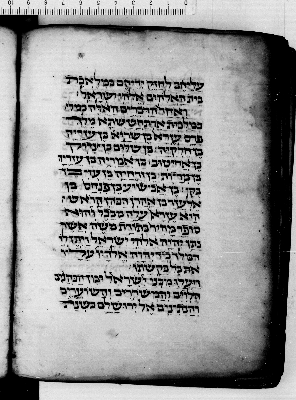 עליהם לחזק ידיהם במלאכת
בית האלהים אלהי ישראל
ואחר הדברים האלה במל
במלכות ארתחשסתא מלך
פרס עזרא בן שריה בן עזריה
בן חלקיה בן שלום בן צדוק
בן אחיטוב בן אמריה בן עזריה
בן מריות בן זרחיה בן עזי
בקי בן אבישוע בן פנחס בן
אלעזר בן אהרן הכהן הראש
הוא עזרא עלה מבבל והוא
סופר מהיר בתורת משה אשר
נתן יהוה אלהי ישראל ויתן לו
המלך כיד יהוה אלהיו עליו
את כל בקשתו
ויעלו מבני ישראל ומן הכהנים
והלוים והמשררים והשוערים
והנתינים אל ירושלם בשנת